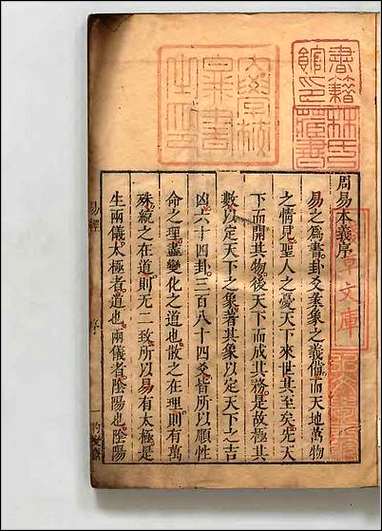 周易本義序
易之爲書卦爻彖象之義備而天地萬物
之情見聖人之憂天下來世其至矣先天
下而開其物後天下而成其務是故極其
數以定天下之象著其象以定天下之吉
凶六十四卦三百八十四爻皆所以順性
命之理盡變化之道也散之在理則有萬
殊統之在道則无二致所以易有太極是
生兩儀太極者道也兩儀者陰陽也陰陽
易經
序
一
書籍
館印
文庫
林氏
藏書